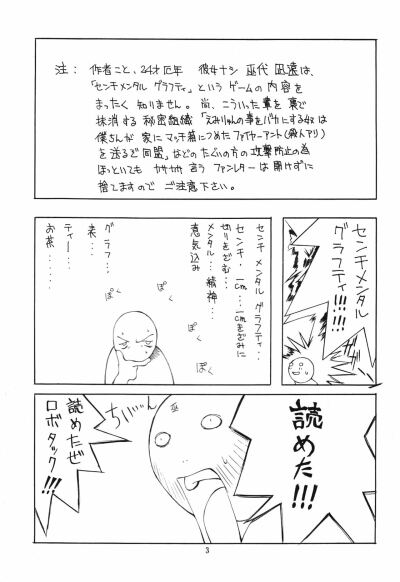 注: 作者こと、24才厄年 彼女ナシ 巫代凪遠は、
「センチメンタル グラフティ」というゲームの内容を
まったく知りません。尚、こういった事を裏で
抹消する秘密組織「えみりゅんの事をバカにする奴は
僕ちんが家にマッチ箱につめたファイヤーアント(殺人アリ)
を送るぞ同盟」などのたぐいの方の攻撃防止の為
ほっといても カサカサ言うファンレターは開けずに
捨てますので ご注意下さい。
センチメンタル
グラフティ!!!!
センチメンタル グラフティ…
センチ…1cm…1cmきざみに
切りきざむ…
メンタル…精神…
意気込み
グラフ…
表…
ティー…
お茶…
ぽく
ぽく
ぽく
ぽく
読めた!!!
ちぃーん
巫
読めたぜ
ロボタック!!!
3